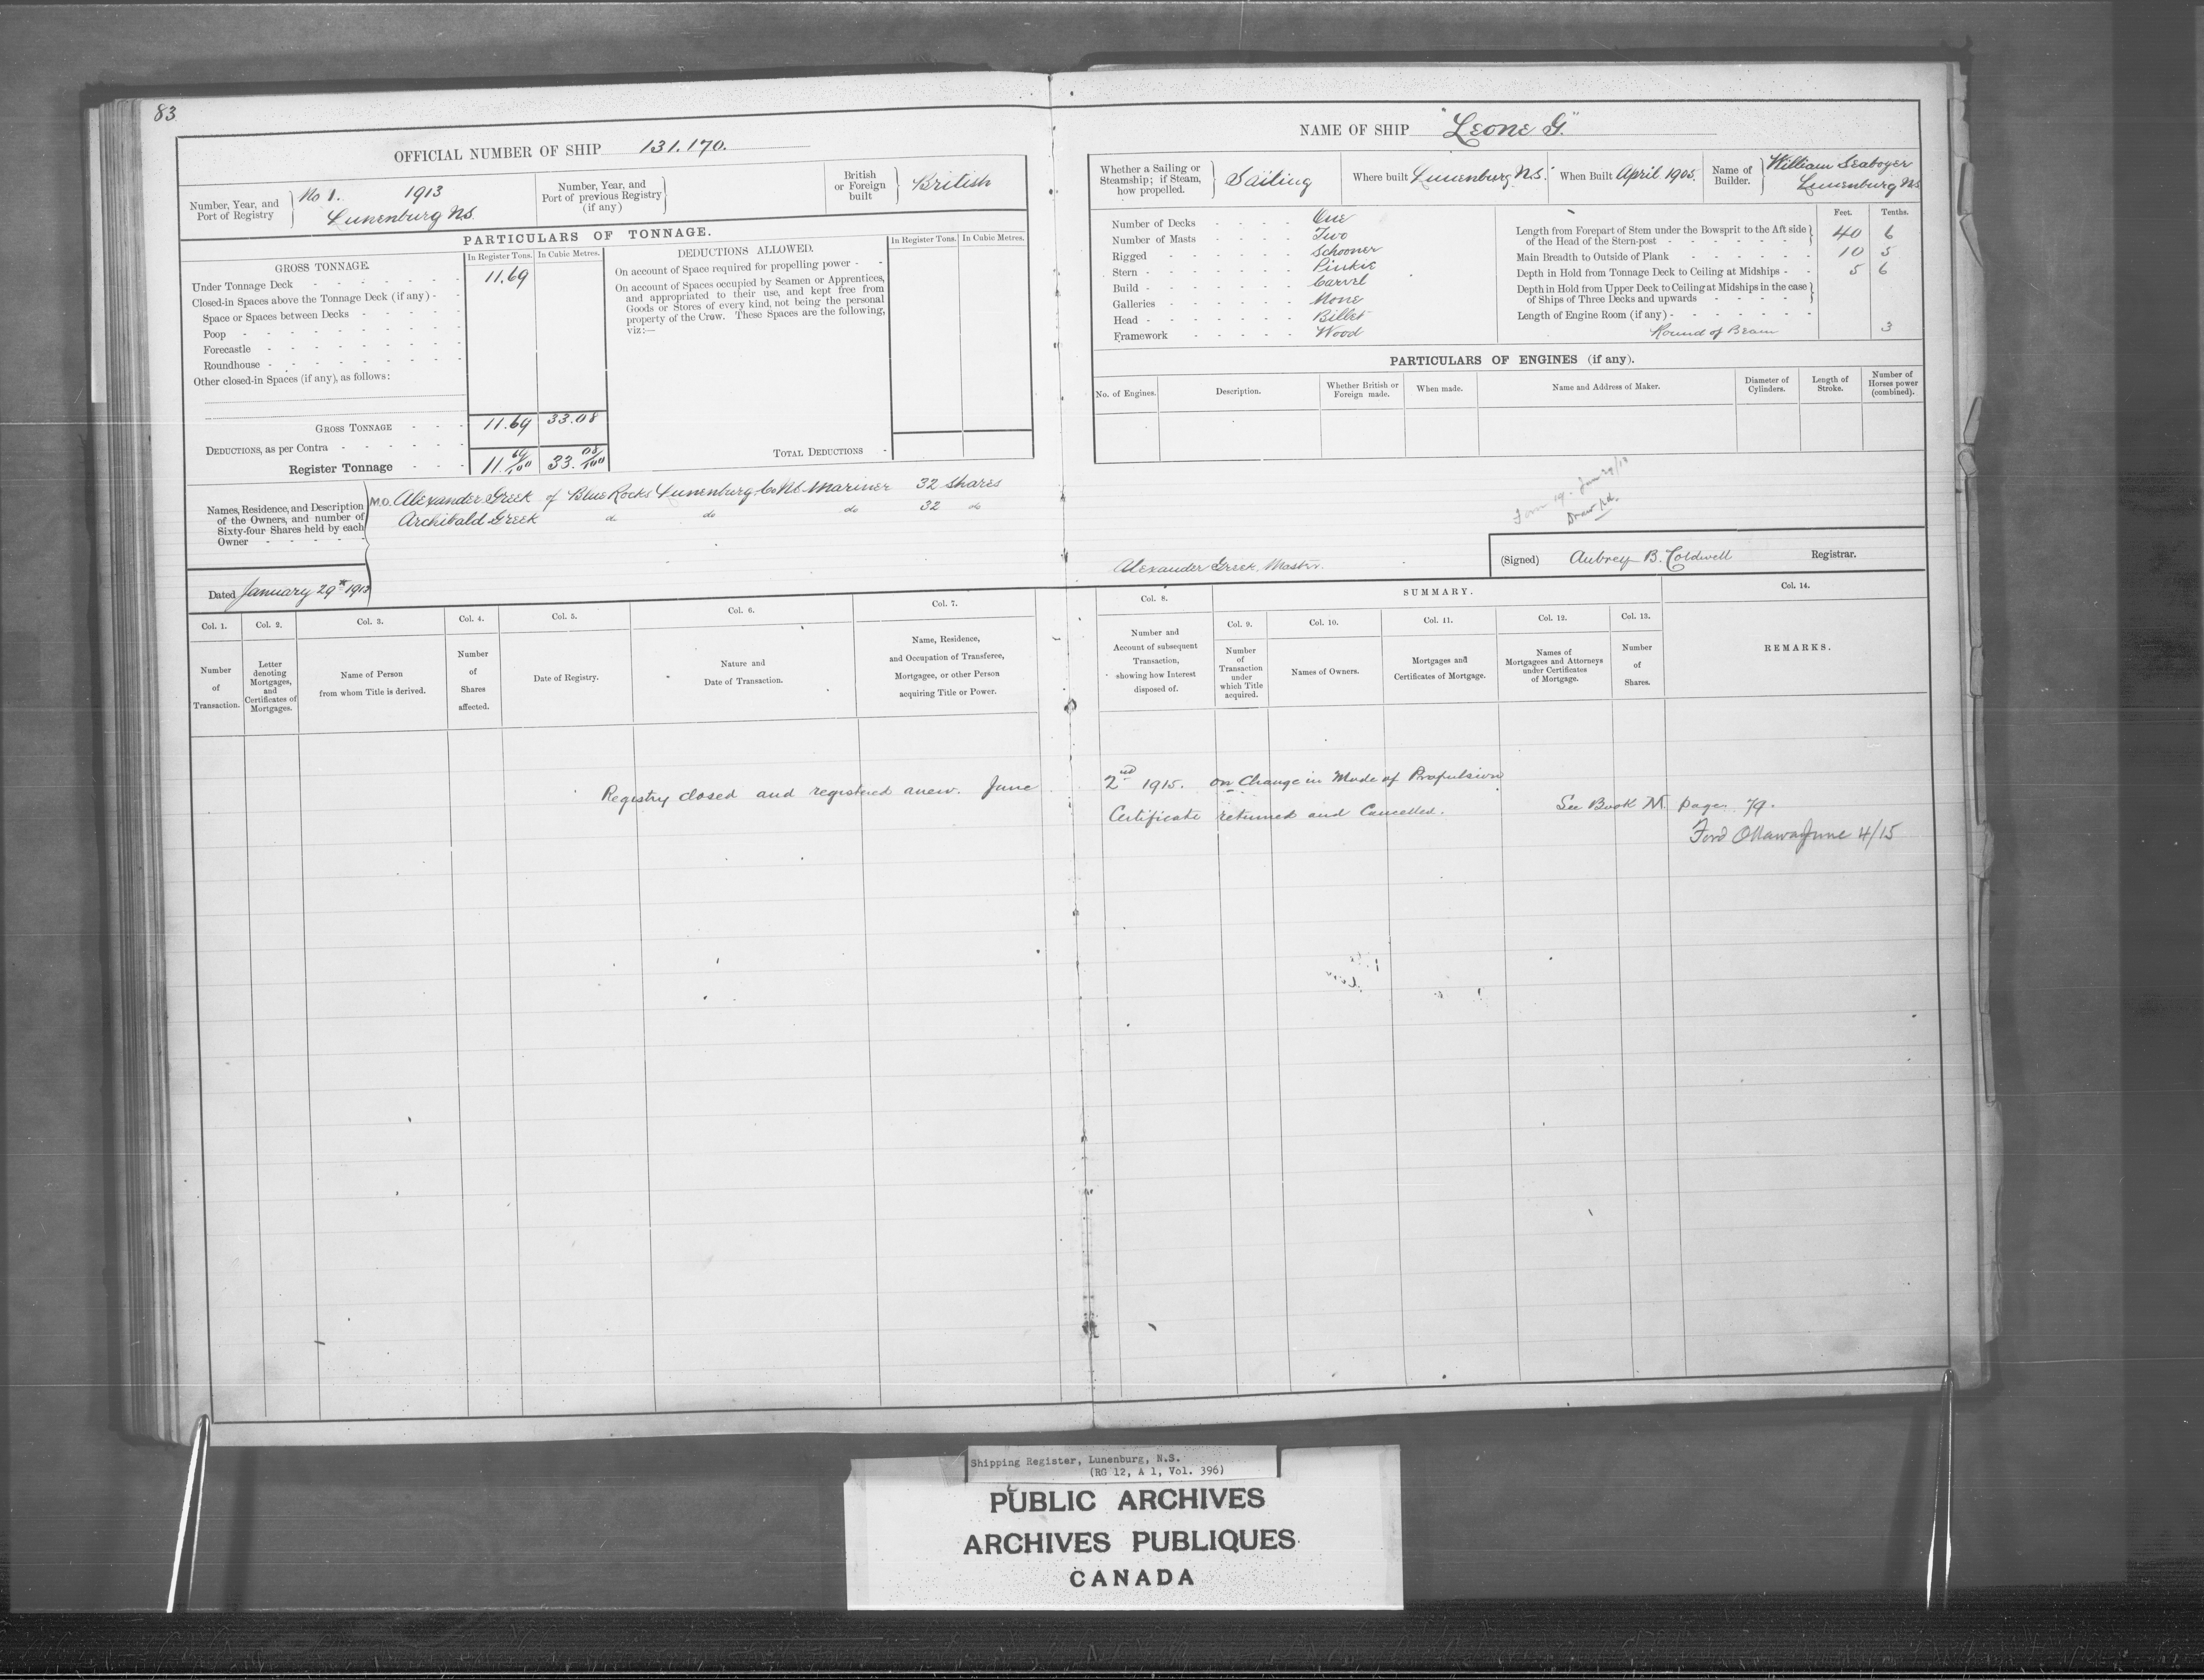 83
OFFICIAL NUMBER OF SHIP 131.170.
Number, Year, and Port of Registry } No 1. 1913
Lunenburg N.S.
Number, Year, and Port of previous Registry (if any) }
British or Foreign built } British
PARTICULARS OF TONNAGE.
GROSS TONNAGE.
In Register Tons. In Cubic Metres.
Under Tonnage Deck 11.69
Closed-in Spaces above the Tonnage Deck (if any) -
Space or Spaces between Decks
Poop
Forecastle
Roundhouse
Other closed-in Spaces (if any), as follows:
GROSS TONNAGE 11.69 33.08
DEDUCTIONS, as per Contra
Register Tonnage 11.69/100 33.08/100
DEDUCTIONS ALLOWED.
In Register Tons. In Cubic Metres.
On account of Space required for propelling power -
On account of Spaces occupied by Seamen or Apprentices,
and appropriated to their use, and kept free from
Goods or Stores of every kind, not being the personal
property of the Crew. These Spaces are the following,
viz:—
TOTAL DEDUCTIONS
Names, Residence, and Description
of the Owners, and number of
Sixty-four Shares held by each
Owner
M.O. Alexander Greek of Blue Rocks Lunenburg Co N.S. Mariner 32 shares
Archibald Greek do do do 32 do
Dated January 29th 1913
NAME OF SHIP "Leone G."
Whether a Sailing or Steamship; if Steam, how propelled. } Sailing
Where built Lunenburg N.S.
When Built April 1905.
Name of Builder. } William Seaboyer
Lunenburg N.S.
Number of Decks One
Number of Masts Two
Rigged Schooner
Stern Pinkie
Build Carvel
Galleries None
Head Billet
Framework Wood
Feet. Tenths.
Length from Forepart of Stem under the Bowsprit to the Aft side
of the Head of the Stern-post 40 6
Main Breadth to Outside of Plank 10 5
Depth in Hold from Tonnage Deck to Ceiling at Midships 5 6
Depth in Hold from Upper Deck to Ceiling at Midships in the case
of Ships of Three Decks and upwards
Length of Engine Room (if any)
Round of Beam 3
PARTICULARS OF ENGINES (if any).
No. of Engines. Description. Whether British or Foreign made. When made. Name and Address of Maker. Diameter of Cylinders. Length of Stroke. Number of Horses power (combined).
Alexander Greek, Master.
(Signed) Aubrey B. Coldwell Registrar.
Col. 1. Col. 2. Col. 3. Col. 4. Col. 5. Col. 6. Col. 7.
Number of Transaction.
Letter denoting Mortgages, and Certificates of Mortgages.
Name of Person from whom Title is derived.
Number of Shares affected.
Date of Registry.
Nature and Date of Transaction.
Name, Residence, and Occupation of Transferee, Mortgagee, or other Person acquiring Title or Power.
SUMMARY.
Col. 8. Col. 9. Col. 10. Col. 11. Col. 12. Col. 13. Col. 14.
Number and Account of subsequent Transaction, showing how Interest disposed of.
Number of Transaction under which Title acquired.
Names of Owners.
Mortgages and Certificates of Mortgage.
Names of Mortgagees and Attorneys under Certificates of Mortgage.
Number of Shares.
REMARKS.
Registry closed and registered anew. June 2nd 1915. on Change in Mode of Propulsion
Certificate returned and Cancelled. See Book M page 79.
Ford Ottawa June 4/15
Shipping Register, Lunenburg, N.S.
(RG 12, A 1, Vol. 396)
PUBLIC ARCHIVES
ARCHIVES PUBLIQUES
CANADA